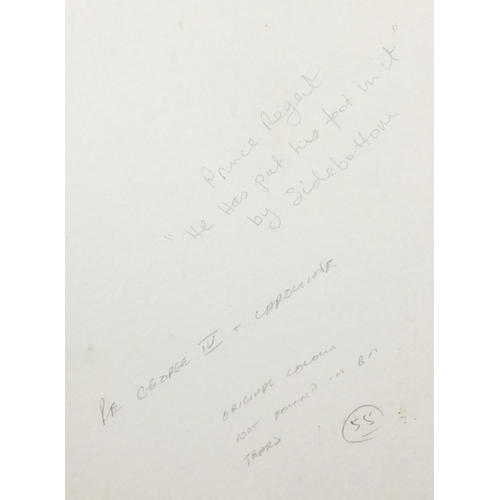 Prince Regent
"He Has put his foot in it"
by Sidebottom
RE GEORGE IV + CAROLINE
ORIGINAL COLOUR
NOT FOUND IN BM
55